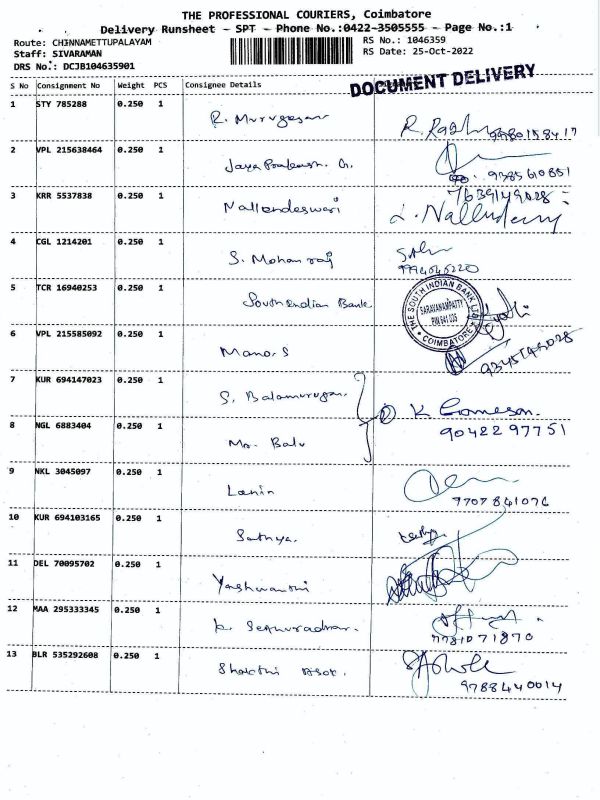 THE PROFESSIONAL COURIERS, Coimbatore
Delivery Runsheet - SPT - Phone No.:0422-3505555 - Page No.:1
Route: CHINNAMETTUPALAYAM
Staff: SIVARAMAN
DRS No.: DCJB104635901
RS No.: 1046359
RS Date: 25-Oct-2022
DOCUMENT DELIVERY
S No Consignment No Weight PCS Consignee Details
1 STY 785288 0.250 1 R. Murugesan
2 VPL 215638464 0.250 1 Jaya Prakash. G.
9385610851
3 KRR 5537838 0.250 1 Nallendeswari
7639149028
4 CGL 1214201 0.250 1 S. Mohan raj
5 TCR 16940253 0.250 1 South Indian Bank
THE SOUTH INDIAN BANK LTD
SARAVANAMPATTY
PIN 641 035
COIMBATORE
6 VPL 215585092 0.250 1 Mano. S
9345149028
7 KUR 694147023 0.250 1 S. Balamurugan.
K Gomesan.
8 NGL 6883404 0.250 1 Mr. Balu
9042297751
9 NKL 3045097 0.250 1 Lanin
7707841076
10 KUR 694103165 0.250 1 Sathya.
11 DEL 70095702 0.250 1 Yashwanthi
12 MAA 295333345 0.250 1
13 BLR 535292608 0.250 1 Shakthi
9788440014